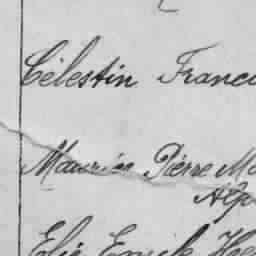 Célestin Franc
Maurice Pierre Ma
Alp
Elie Emile